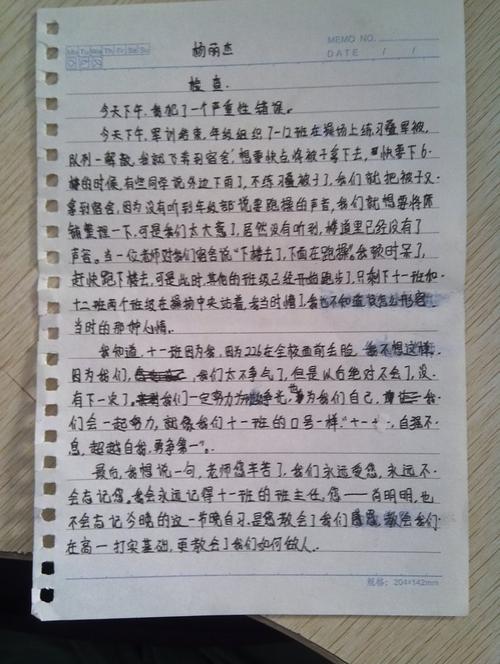 Mo Tu We Th Fr Sa Su
MEMO NO.
DATE / /
杨丽杰
检查.
今天下午,我犯了一个严重性错误。
今天下午,军训结束,年级组织7-12班在操场上练习叠军被,
队列一解散,我就飞奔到宿舍,想要快点将被子拿下去,快要下6
楼的时候,有些同学说外边下雨了,不练习叠被子了,我们就把被子又
拿到宿舍,因为没有听到年级部说要跑操的声音,我们就想要将床
铺整理一下,可是我们太大意了,居然没有听到,楼道里已经没有了
声音。当一位老师对我们宿舍说“下楼去了,下面在跑操”。我顿时呆了,
赶快跑下楼去,可是此时,其他的班级已经开始跑步了,只剩下十一班和
十二班两个班级在操场中央站着,我当时懵了,我也不知道该怎么形容
当时的那种心情。
我知道,十一班因为我,因为226在全校面前丢脸,我不想这样,
因为我们,我们太不争气了,但是以后绝对不会了,没
有下一次了。我们一定努力为班争光,也为我们自己,我
们会一起努力,就像我们十一班的口号一样。“十一十一,自强不
息,超越自我,勇争第一”。
最后,我想说一句,老师您辛苦了,我们永远爱您,永远不
会忘记您。我会永远记得十一班的班主任,您——肖明明,也
不会忘记今晚的这一节晚自习,是您教会了我们感恩,教会我们
在高一打实基础,更教会了我们如何做人.
规格: 204×142mm